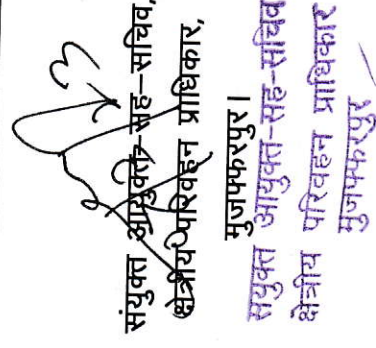 संयुक्त आयुक्त-सह-सचिव,
क्षेत्रीय परिवहन प्राधिकार,
मुजफ्फरपुर।
संयुक्त आयुक्त-सह-सचिव
क्षेत्रीय परिवहन प्राधिकार
मुजफ्फरपुर